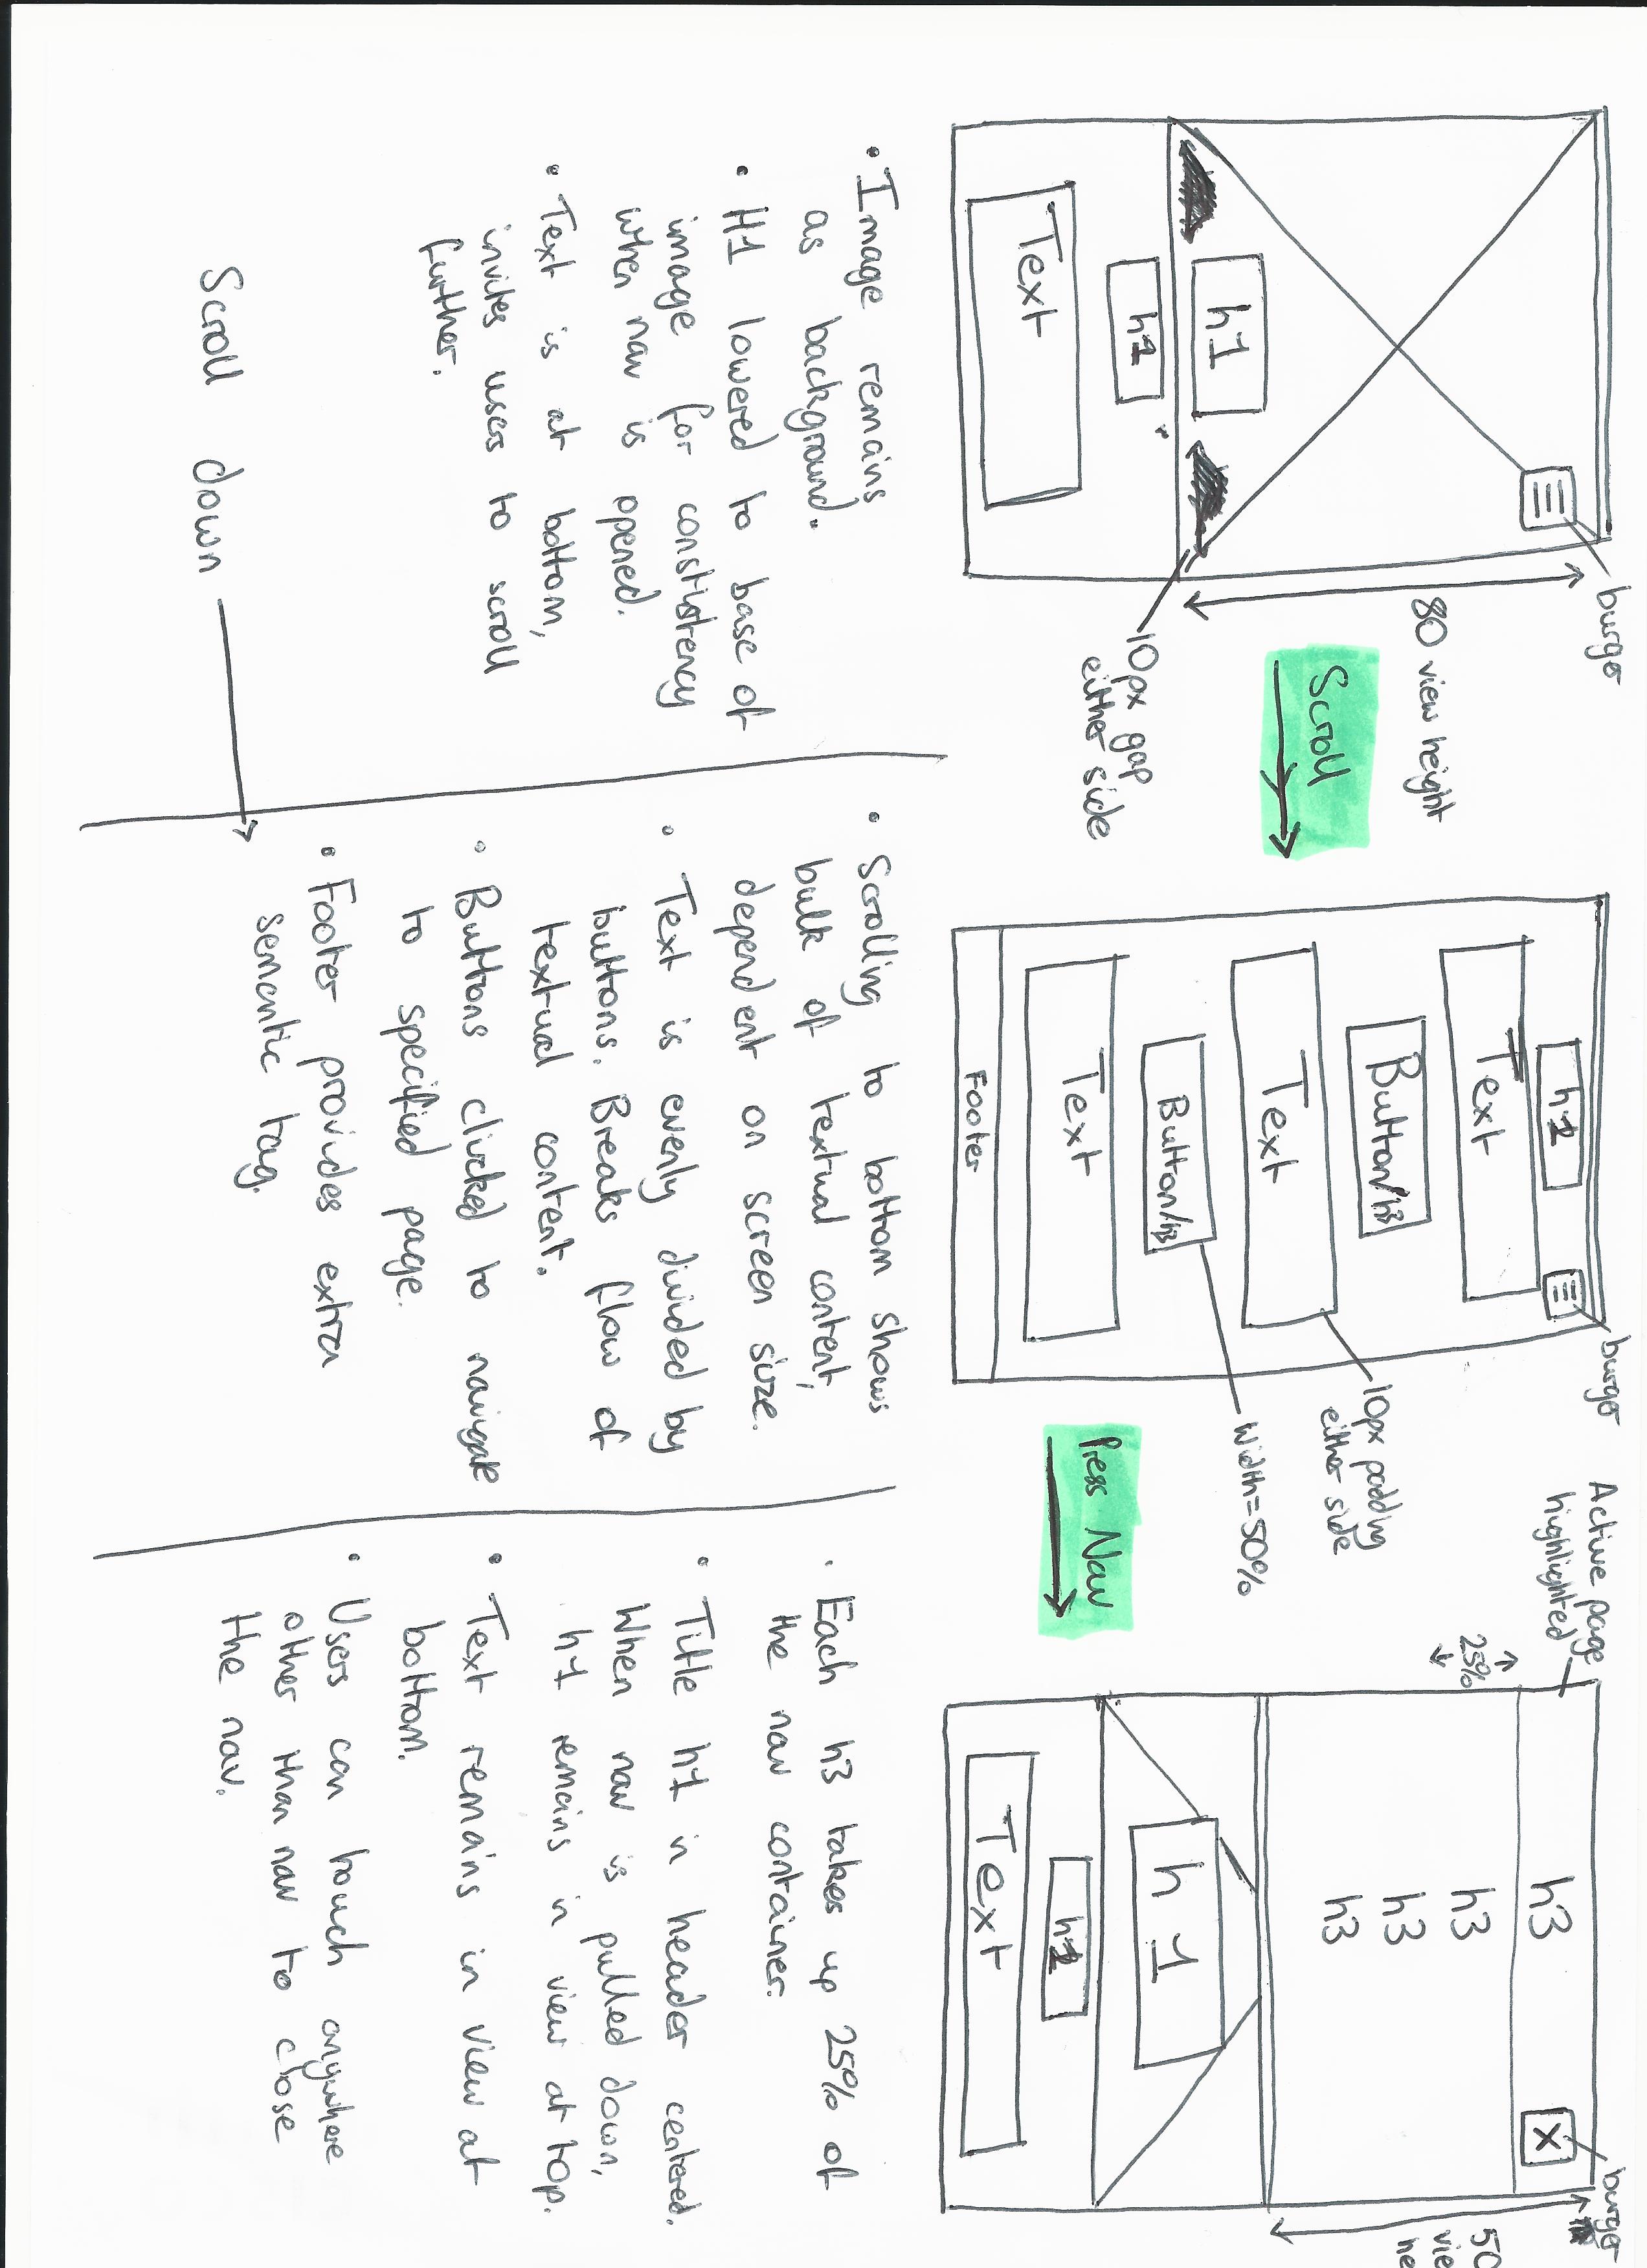 burger
80 view height
h1
10px gap
either side
h2
Text
Scroll
• Image remains
as background.
• H1 lowered to base of
image for consistency
when nav is opened.
• Text is at bottom,
invites users to scroll
further.
Scroll down
burger
h2
Text
Button/h3
Text
10px padding
either side
Button/h3
Width=50%
Text
Footer
Press Nav
• Scrolling to bottom shows
bulk of textual content,
dependent on screen size.
• Text is evenly divided by
buttons. Breaks flow of
textual content.
• Buttons clicked to navigate
to specified page.
• Footer provides extra
semantic tag.
Active page
highlighted
25%
h3
h3
h3
h3
X
burger
50
vie
he
h1
h2
Text
• Each h3 takes up 25% of
the nav container.
• Title h1 in header centered.
When nav is pulled down,
h1 remains in view at top.
• Text remains in view at
bottom.
• Users can touch anywhere
other than nav to close
the nav.